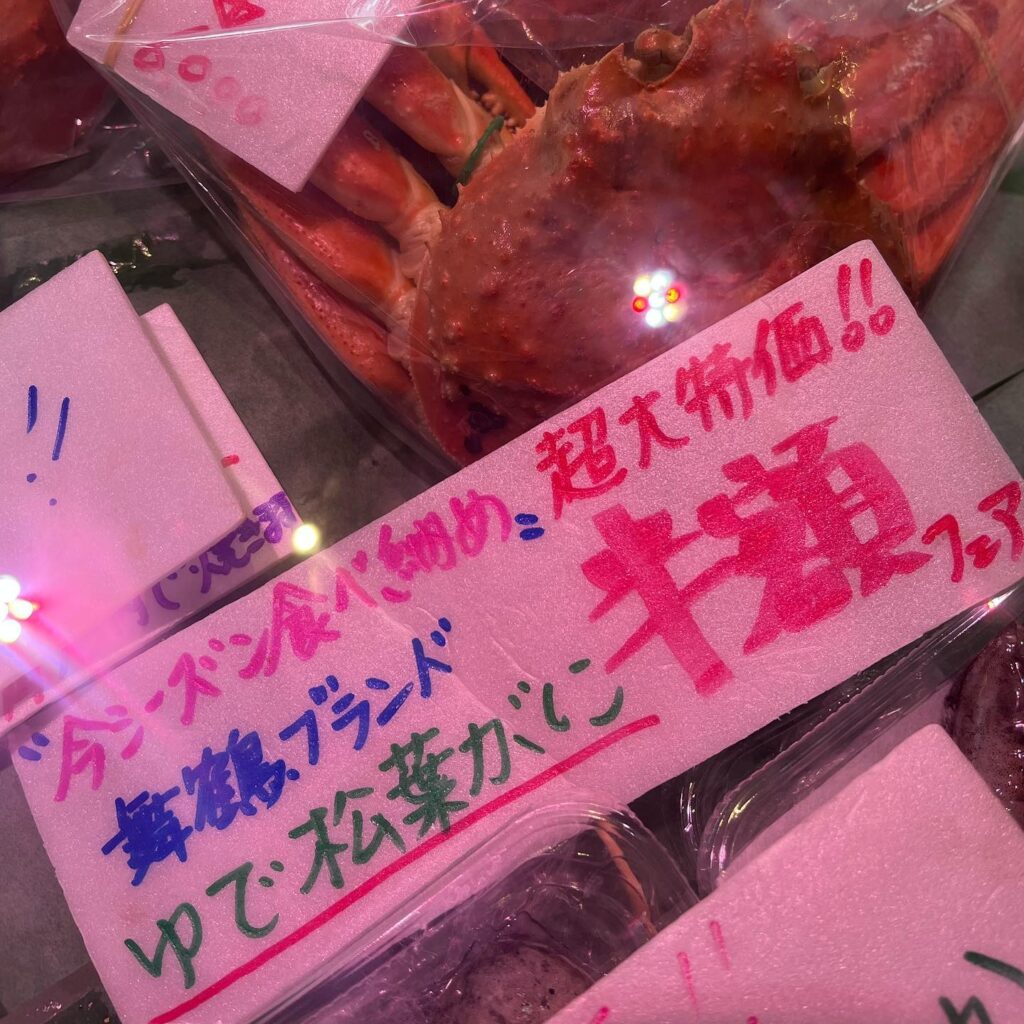 8000
"今シーズン食べ納め"
舞鶴ブランド
ゆで松葉がに
超大特価!!
半額
フェア
!!